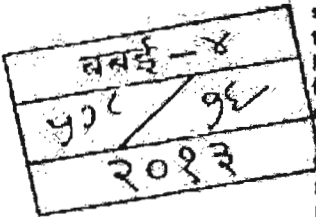 बबई - ४
५१८ / १६
२०१३